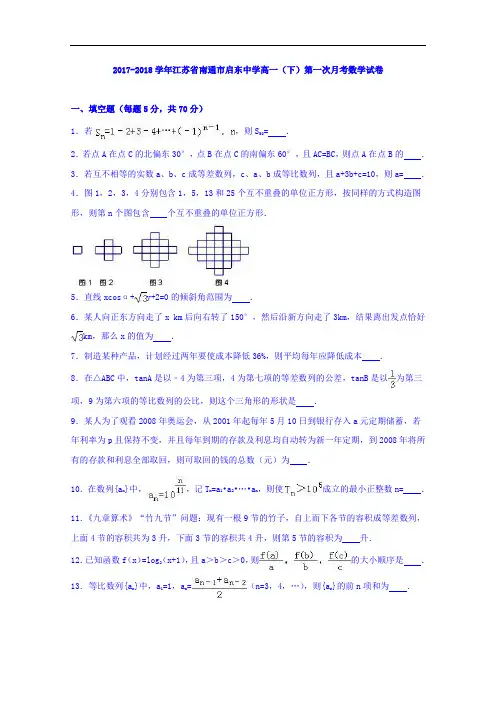 2017-2018学年江苏省南通市启东中学高一（下）第一次月考数学试卷
一、填空题（每题5分，共70分）
1．若Sₙ=1﹣2+3﹣4+…+(﹣1)ⁿ⁻¹．n，则S₅₀= ．
2．若点A在点C的北偏东30°，点B在点C的南偏东60°，且AC=BC，则点A在点B的 ．
3．若互不相等的实数a、b、c成等差数列，c、a、b成等比数列，且a+3b+c=10，则a= ．
4．图1，2，3，4分别包含1，5，13和25个互不重叠的单位正方形，按同样的方式构造图
形，则第n个图包含 个互不重叠的单位正方形．
图1 图2 图3 图4
5．直线xcosα+√3y+2=0的倾斜角范围为 ．
6．某人向正东方向走了x km后向右转了150°，然后沿新方向走了3km，结果离出发点恰好
√3km，那么x的值为 ．
7．制造某种产品，计划经过两年要使成本降低36%，则平均每年应降低成本 ．
8．在△ABC中，tanA是以﹣4为第三项，4为第七项的等差数列的公差，tanB是以1/3为第三
项，9为第六项的等比数列的公比，则这个三角形的形状是 ．
9．某人为了观看2008年奥运会，从2001年起每年5月10日到银行存入a元定期储蓄，若
年利率为p且保持不变，并且每年到期的存款及利息均自动转为新一年定期，到2008年将所
有的存款和利息全部取回，则可取回的钱的总数（元）为 ．
10．在数列{aₙ}中，aₙ=10^(n/11)，记Tₙ=a₁•a₂•…•aₙ，则使Tₙ>10⁶成立的最小正整数n= ．
11．《九章算术》“竹九节”问题：现有一根9节的竹子，自上而下各节的容积成等差数列，
上面4节的容积共为3升，下面3节的容积共4升，则第5节的容积为 升．
12.已知函数f（x）=log₂（x+1），且a＞b＞c＞0，则f(a)/a，f(b)/b，f(c)/c的大小顺序是 ．
13．等比数列{aₙ}中，a₁=1，aₙ=(aₙ₋₁+aₙ₋₂)/2（n=3，4，…），则{aₙ}的前n项和为 ．